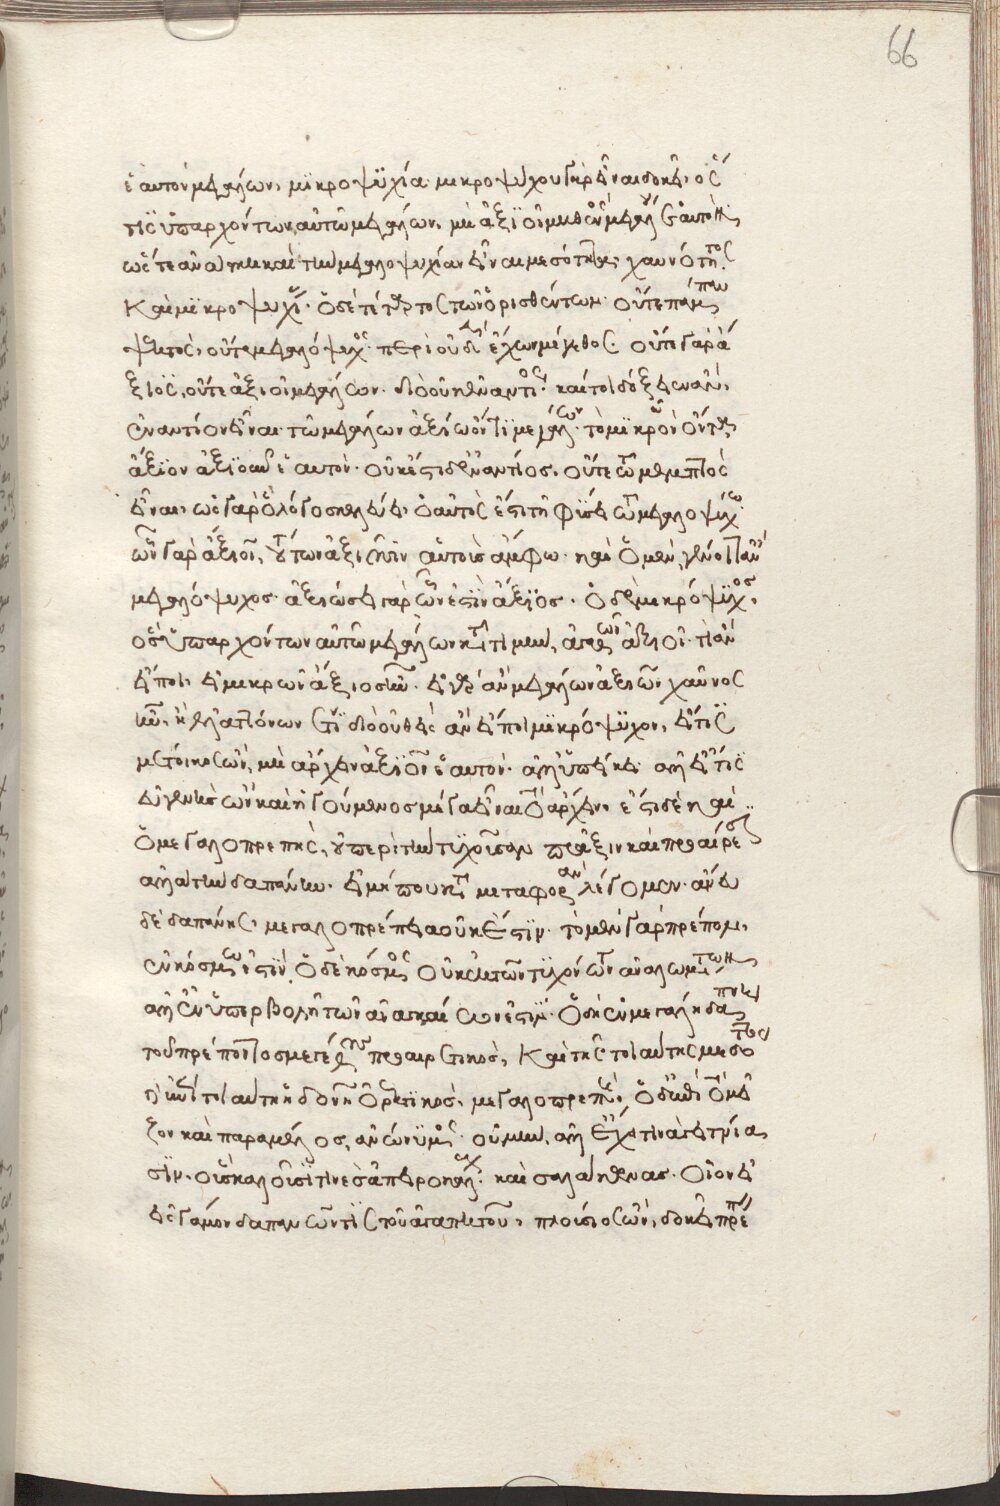 ἑαυτὸν μεγάλων, μϊκροψϋχία· μικροψύχου γὰρ εἶναι δοκεῖ, ὅς
τις ὑπαρχόντων αὐτῷ μεγάλων, μὴ ἀξϊοῖ μηθενὸς μεγάλου ἑαυτὸν·
ὥστε ἀνάγκη καὶ τὴν μεγαλοψυχίαν εἶναι μεσότητα χαυνότητος
καὶ μϊκροψυχίας. ὁ δὲ τέταρτος τῶν ὁρισθέντων οὔτε πάμπαν
ψεκτὸς, οὔτε μεγαλόψυχος. περὶ οὐδὲν ἔχων μέγεθος. οὔτε γὰρ ἄ
ξιος, οὔτε ἀξιοῖ μεγάλων. διὸ οὐκ ἐναντίος. καίτοι δόξειεν ἂν,
ἐναντίον εἶναι τῷ μεγάλων ἀξιοῦν ὄντα μεγάλων. τὸ μϊκρῶν ὄντα
ἄξϊον ἀξϊοῦν ἑαυτὸν. οὐκ ἔστι δ' ἐναντίος. οὔτε τῷ μεμπτὸς
εἶναι. ὡς γὰρ ὁ λόγος κελεύει, ὁ αὐτὸς ἐστι τῇ φύσει τῷ μεγαλοψύχῳ·
ὧν γὰρ ἄξιοι, τούτων ἀξιοῦσιν αὐτοὺς ἄμφω. καὶ ὁ μὲν, γένοιτ' ἂν
μεγαλόψυχος. ἀξιώσει γὰρ ὧν ἐστὶν ἄξϊος. ὁ δὲ μικρόψϋχος,
ὃς ὑπαρχόντων αὐτῷ μεγάλων κατὰ τιμὴν, ἀγαθῶν ἀξιοῖ. τί ἂν
εἴποι, εἰ μικρῶν ἄξιος ἦν. εἰ γὰρ ἂν μεγάλων ἀξιῶν χαῦνος
ἦν, ἢ ἐλαττόνων διὸ οὐθεὶς ἂν εἴποι μϊκρόψϋχον, εἴ τις
μέτοικος ὢν, μὴ ἄρχειν ἀξϊοῖ ἑαυτὸν. ἀλλ' ὑπείκει. ἀλλ' εἴ τις
εὐγενὴς ὢν καὶ ἡγούμενος μέγα εἶναι τὸ ἄρχειν. ἔστι δὲ καὶ
ὁ μεγαλοπρεπὴς, οὐ περὶ τὴν τϋχοῦσαν πρᾶξιν καὶ προαίρεσιν
ἀλλὰ τὴν δαπάνην. εἰ μή που κατὰ μεταφορὰν λέγομεν. ἄνευ
δὲ δαπάνης μεγαλοπρέπεια οὐκ ἔστϊν. τὸ μὲν γὰρ πρέπον,
ἐν κόσμῳ ἐστὶν, ὁ δὲ κόσμος οὐκ ἐκ τῶν τϋχόντων ἀναλωμάτων
ἀλλ' ἐν ὑπερβολῇ τῶν ἀναγκαίων ἐστϊν. ὁ δὴ ἐν μεγάλῃ δαπάνῃ
τοῦ πρέποντος μεγέθους προαιρετικὸς, καὶ τῆς τοιαύτης μεσότητος
καὶ ἐπὶ τῇ τοιαύτῃ ἡδονῇ ὀρεκτϊκὸς, μεγαλοπρεπὴς, ὁ δ' ἐπὶ τὸ μεῖ
ζον καὶ παρὰ μέλος, ἀνώνϋμος· οὐ μὴν, ἀλλ' ἔχει τινὰ γειτνία
σϊν. οὓς καλοῦσϊ τινες ἀπειροκάλους καὶ σαλάκωνας. οἷον εἰ
εἰς γάμον δαπανῶν τϊς τοῦ ἀγαπητοῦ, πλούσϊος ὢν, δοκεῖ πρέπειν